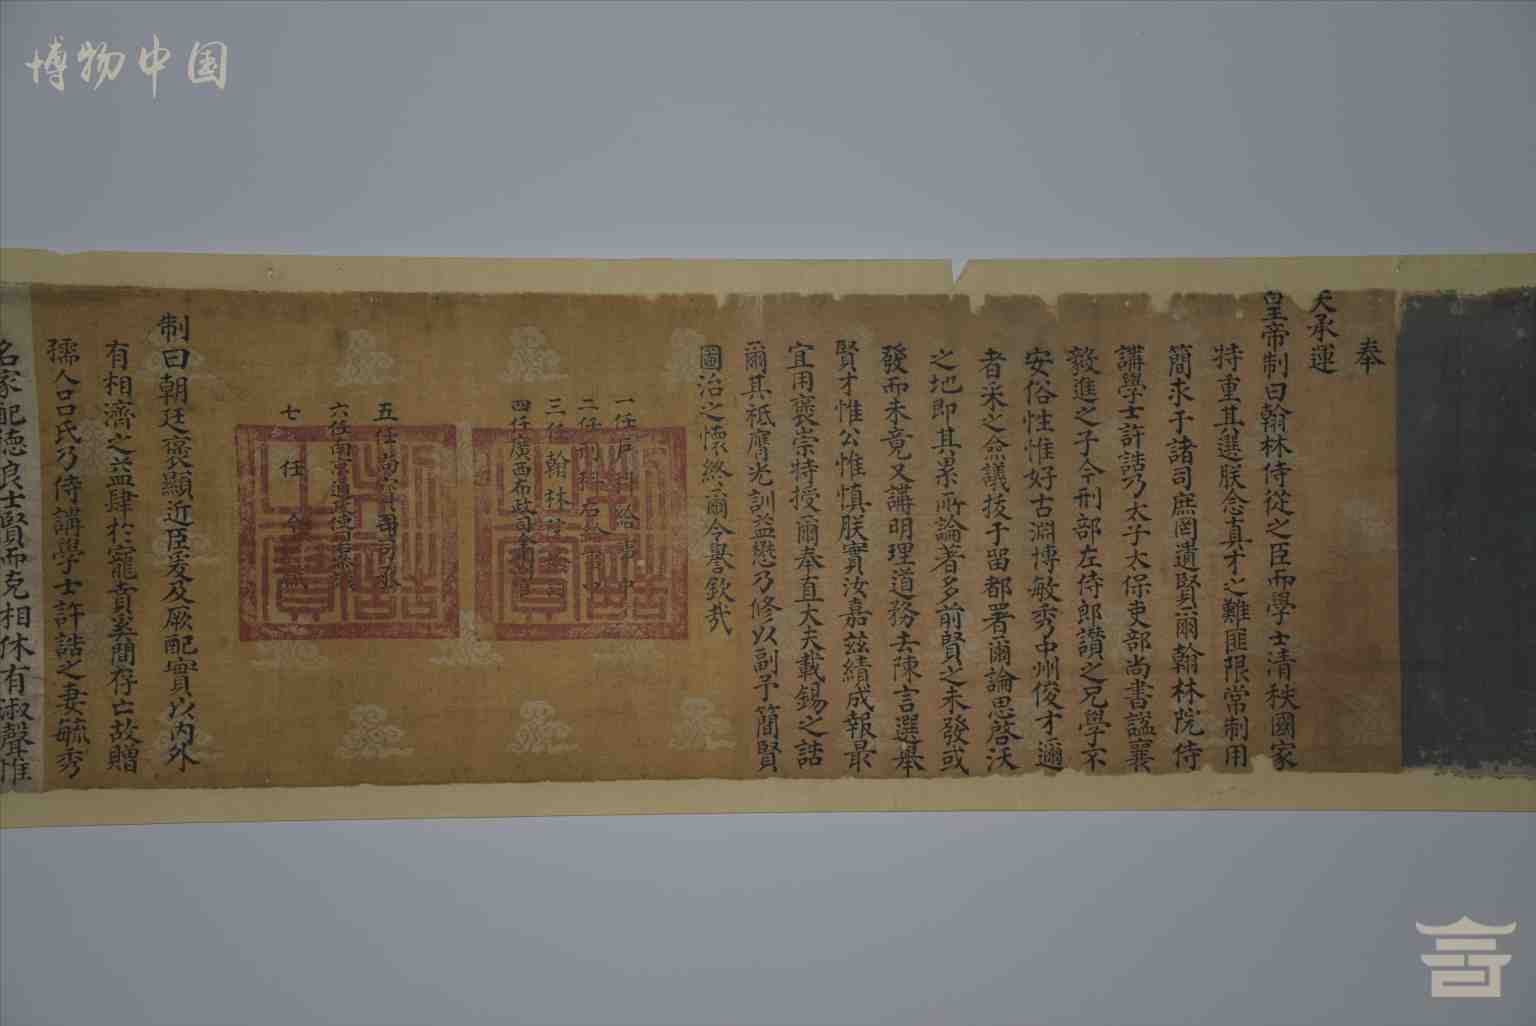 博物中国
奉
天承運
皇帝制曰翰林侍從之臣而學士清秩國家
特重其選朕念真才之難匪限常制用
簡求于諸司庶罔遺賢爾翰林院侍
講學士許誥乃太子太保吏部尚書謚襄
毅進之子令刑部左侍郎讚之兄學不
安俗性惟好古淵博敏秀中州俊才邇
者采之僉議拔于留都署爾論思啓沃
之地即其累所論著多前賢之未發或
發而未竟又講明理道務去陳言選舉
賢才惟公惟慎朕實汝嘉兹績成報最
宜用褒崇特授爾奉直大夫載錫之誥
爾其祗膺光訓益懋乃修以副予簡賢
圖治之懷終爾令譽欽哉
一任戶科給事中
二任刑科右給事中
三任翰林院
四任廣西布政司
五任尚寶司
六任南京通政使司
七任今職
制曰朝廷褒顯近臣爰及厥配實以內外
有相濟之益肆於寵賁奚間存亡故贈
孺人口口氏乃侍講學士許誥之妻毓秀
名家配德良士賢而克相休有淑聲惟